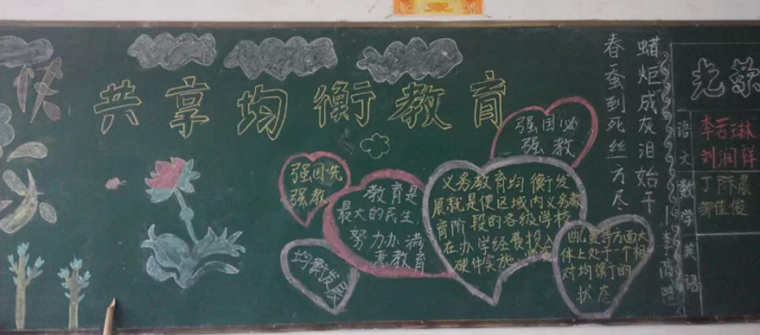 共享均衡教育
强国先
强教
强国必
强教
教育是
最大的民生
努力办满
意教育
均衡发展
义务教育均衡发
展就是使区域内义务教
育阶段的各级学校
在办学经费投入
硬件实施
等方面大
体上处于一个相
对均衡的
状态
春蚕到死丝方尽
蜡炬成灰泪始干
光荣
语文
数学
英语